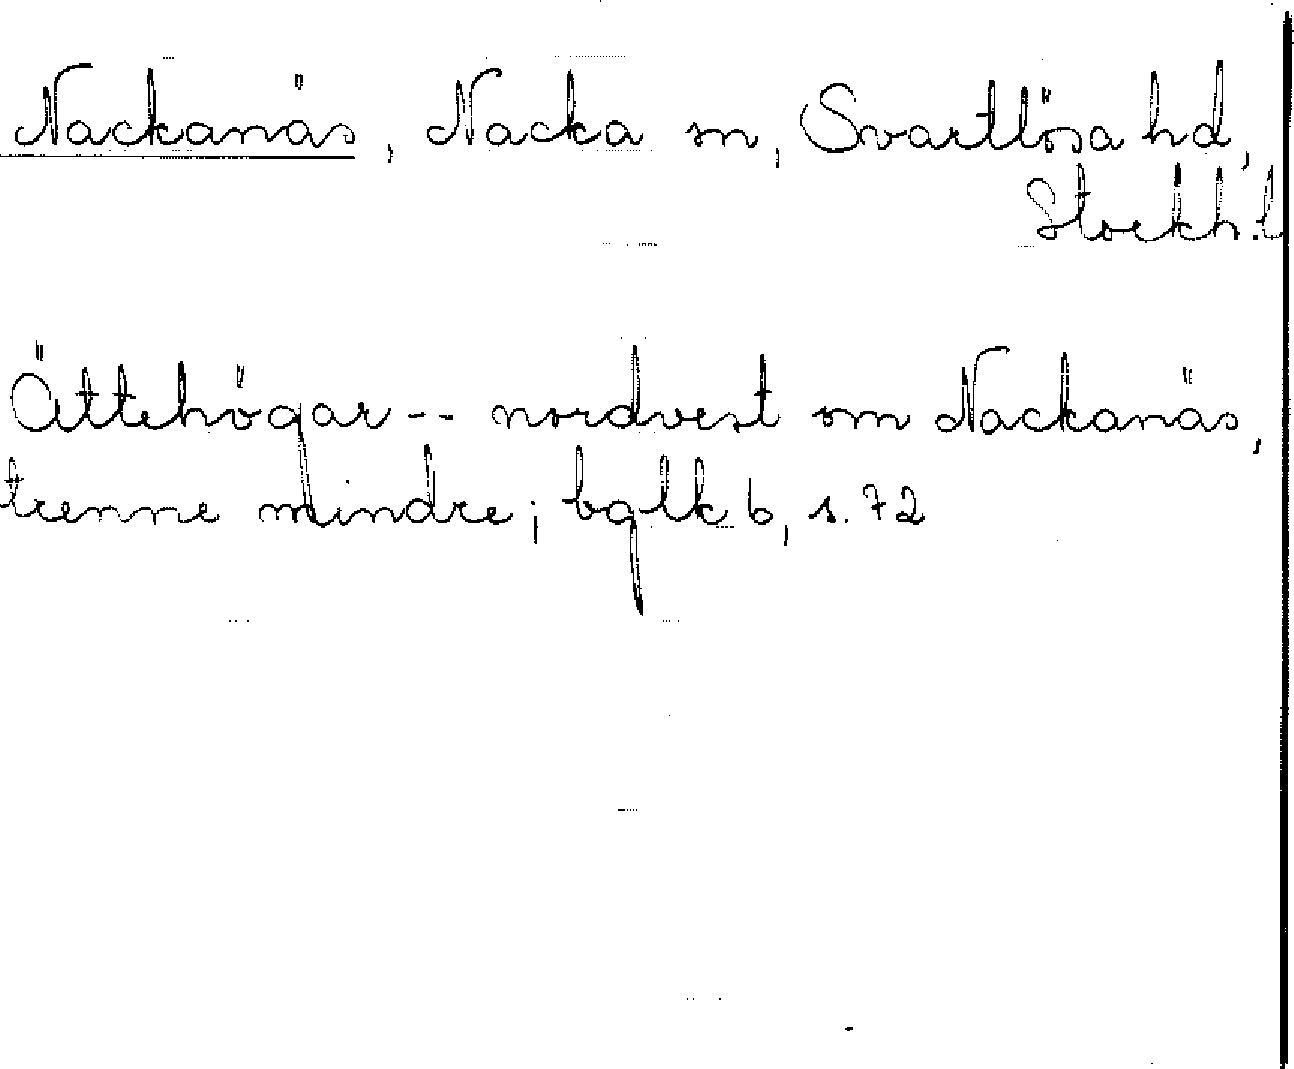 Nackanäs, Nacka sn, Svartlösa hd,
Stockh.l
Ättehögar -- nordvest om Nackanäs,
trenne mindre; bglk 6, s. 72